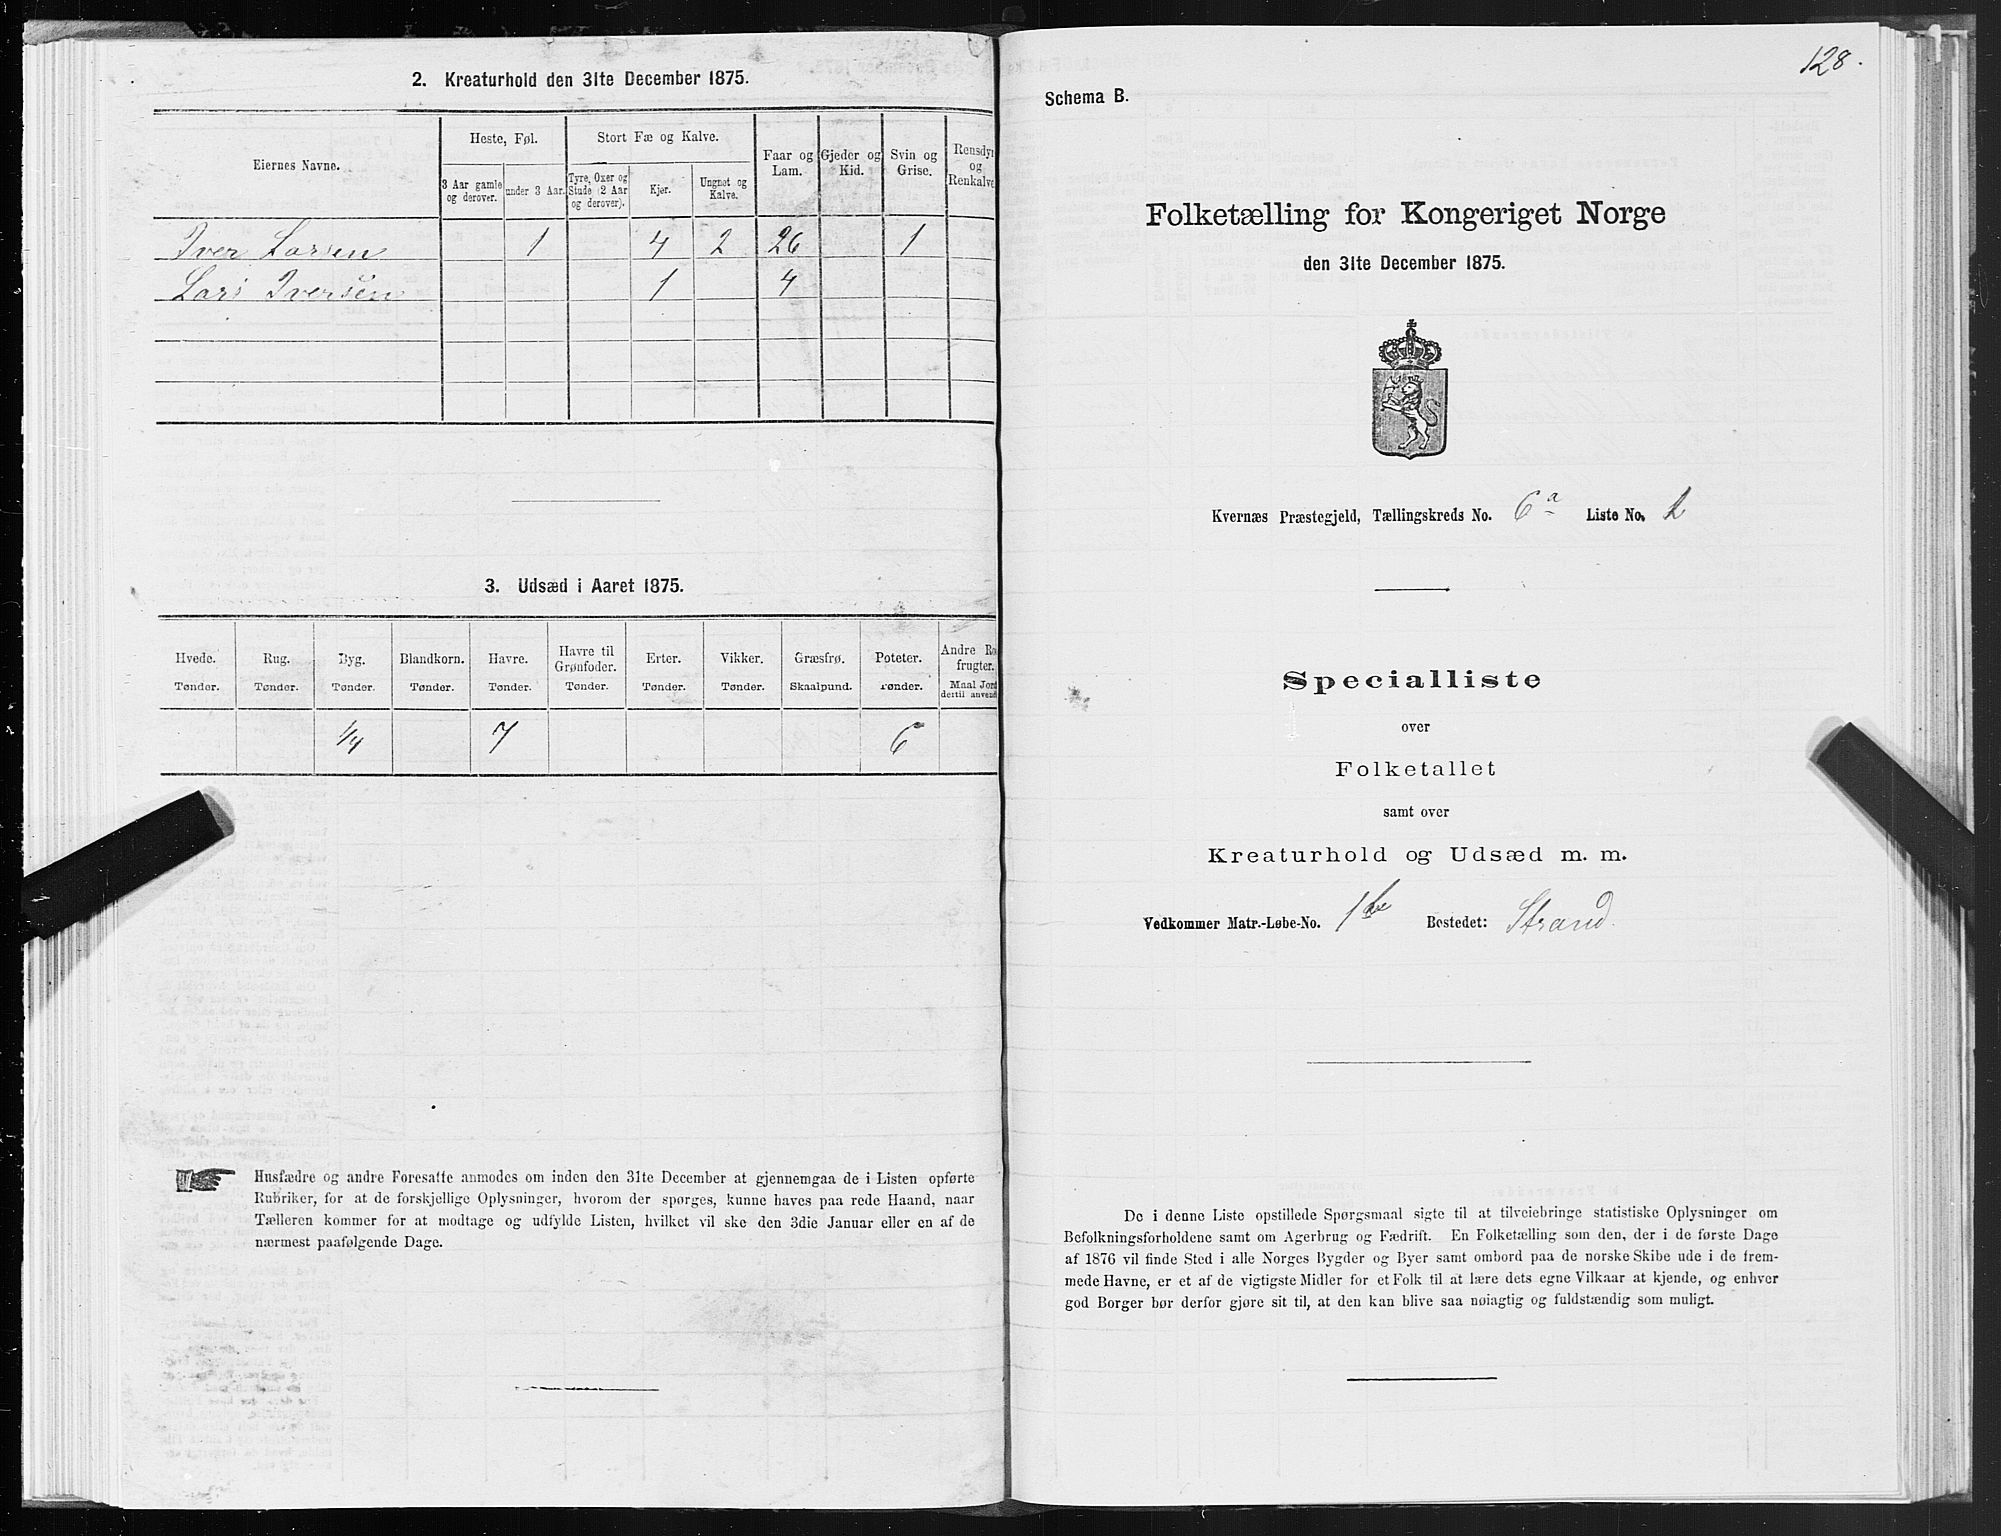 2. Kreaturhold den 31te December 1875.
Eiernes Navne.
Heste, Føl.
Stort Fæ og Kalve.
Faar og Lam.
Gjeder og Kid.
Svin og Grise.
Rensdyr og Renkalve
3 Aar gamle og derover.
under 3 Aar.
Tyre, Oxer og Stude (2 Aar og derover).
Kjør.
Ungnøt og Kalve.
Iver Larsen 1 4 2 26 1
Lars Iversen 1 4
3. Udsæd i Aaret 1875.
Hvede. Rug. Byg. Blandkorn. Havre. Havre til Grønfoder. Erter. Vikker. Græsfrø. Poteter. Andre Ro frugter.
Tønder. Tønder. Tønder. Tønder. Tønder. Tønder. Tønder. Tønder. Skaalpund. Tønder. Maal Jord dertil anvendt
1/4 7 6
Husfædre og andre Foresatte anmodes om inden den 31te December at gjennemgaa de i Listen opførte
Rubriker, for at de forskjellige Oplysninger, hvorom der spørges, kunne haves paa rede Haand, naar
Tælleren kommer for at modtage og udfylde Listen, hvilket vil ske den 3die Januar eller en af de
nærmest paafølgende Dage.
128.
Schema B.
Folketælling for Kongeriget Norge
den 31te December 1875.
Kvernæs Præstegjeld, Tællingskreds No. 6a Liste No. 2
Specialliste
over
Folketallet
samt over
Kreaturhold og Udsæd m. m.
Vedkommer Matr.-Løbe-No. 1b Bostedet: Strand.
De i denne Liste opstillede Spørgsmaal sigte til at tilveiebringe statistiske Oplysninger om
Befolkningsforholdene samt om Agerbrug og Fædrift. En Folketælling som den, der i de første Dage
af 1876 vil finde Sted i alle Norges Bygder og Byer samt ombord paa de norske Skibe ude i de frem-
mede Havne, er et af de vigtigste Midler for et Folk til at lære dets egne Vilkaar at kjende, og enhver
god Borger bør derfor gjøre sit til, at den kan blive saa nøiagtig og fuldstændig som muligt.